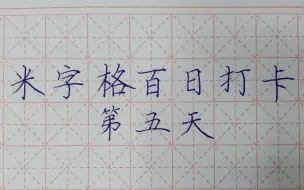 米字格百日打卡
第五天